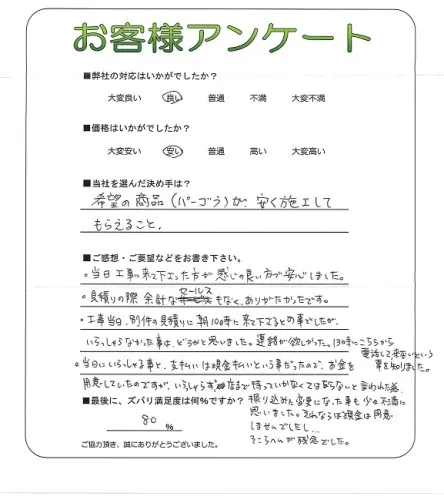 お客様アンケート
■弊社の対応はいかがでしたか?
大変良い 良い 普通 不満 大変不満
■価格はいかがでしたか?
大変安い 安い 普通 高い 大変高い
■当社を選んだ決め手は?
希望の商品(パーゴラ)が、安く施工して
もらえること。
■ご感想・ご要望などをお書き下さい。
・当日工事に来て下さった方が感じの良い方で安心しました。
・見積りの際 余計なセールスもなく、ありがたかったです。
・工事当日、別件の見積りに朝10時に来て下さるとの事でしたが、
いらっしゃらなかった事は、どうかと思いました。連絡が欲しかった。(30分にこちらから
電話して来ないという
事を知りました。
・当日にいらっしゃる事と、支払いは現金払いという事だったので、お金を
用意していたのですが、いらっしゃらず店まで持っていかなくては駄目と言われた為、
■最後に、ズバリ満足度は何%ですか?
振り込みに変更になった事も少々不満に
思いました。それならば現金は用意
しませんでしたし…
そこらへんが残念でした。
80 %
ご協力頂き、誠にありがとうございました。